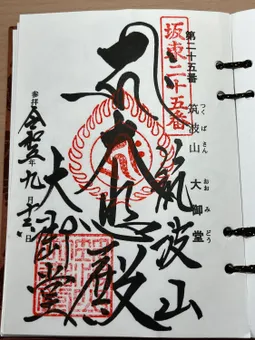 坂東二十五番
第二十五番
筑波山
つくばさん
大御堂
おおみどう
筑波山
大悲殿
大御堂
参拝
令和
年九月
日